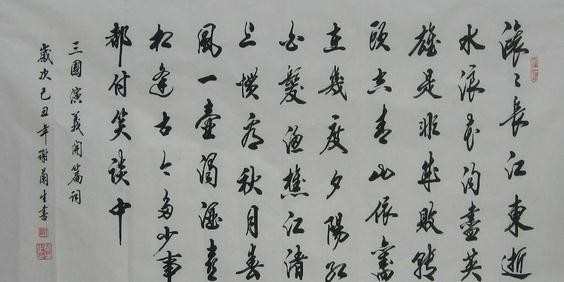 滚〻長江東逝
水浪花淘盡英
雄是非成敗轉
頭空青山依舊
在幾度夕陽紅
白髮漁樵江渚
上慣看秋月春
風一壺濁酒喜
相逢古今多少事
都付笑談中
三國演義開篇詞
歲次己丑年生書